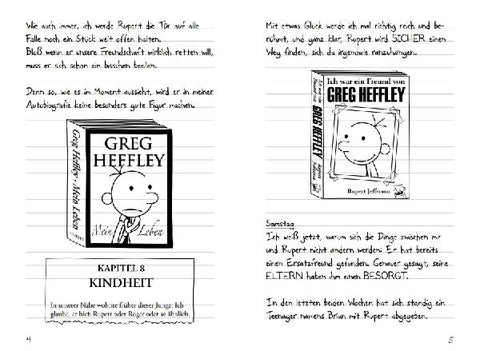 Wie auch immer, ich werde Rupert die Tür auf alle
Fälle noch ein Stück weit offen halten.
Bloß wenn er unsere Freundschaft wirklich retten will,
muss er sich schon ein bisschen beeilen.
Denn so, wie es im Moment aussieht, wird er in meiner
Autobiografie keine besonders gute Figur machen.
Greg Heffley · Mein Leben
GREG
HEFFLEY
Mein Leben
KAPITEL 8
KINDHEIT
In unserer Nähe wohnte früher dieser Junge. Ich
glaube, er hieß Rupert oder Roger oder so ähnlich.
4
Mit etwas Glück werde ich mal richtig reich und be-
rühmt, und ganz klar, Rupert wird SICHER einen
Weg finden, sich da irgendwie ranzuhängen.
Ich war ein Freund von
GREG HEFFLEY
GREG HEFFLEY
Rupert Jefferson
Samstag
Ich weiß jetzt, warum sich die Dinge zwischen mir
und Rupert nicht ändern werden: Er hat bereits
einen Ersatzfreund gefunden. Genauer gesagt, seine
ELTERN haben ihm einen BESORGT.
In den letzten beiden Wochen hat sich ständig ein
Teenager namens Brian mit Rupert abgegeben.
5